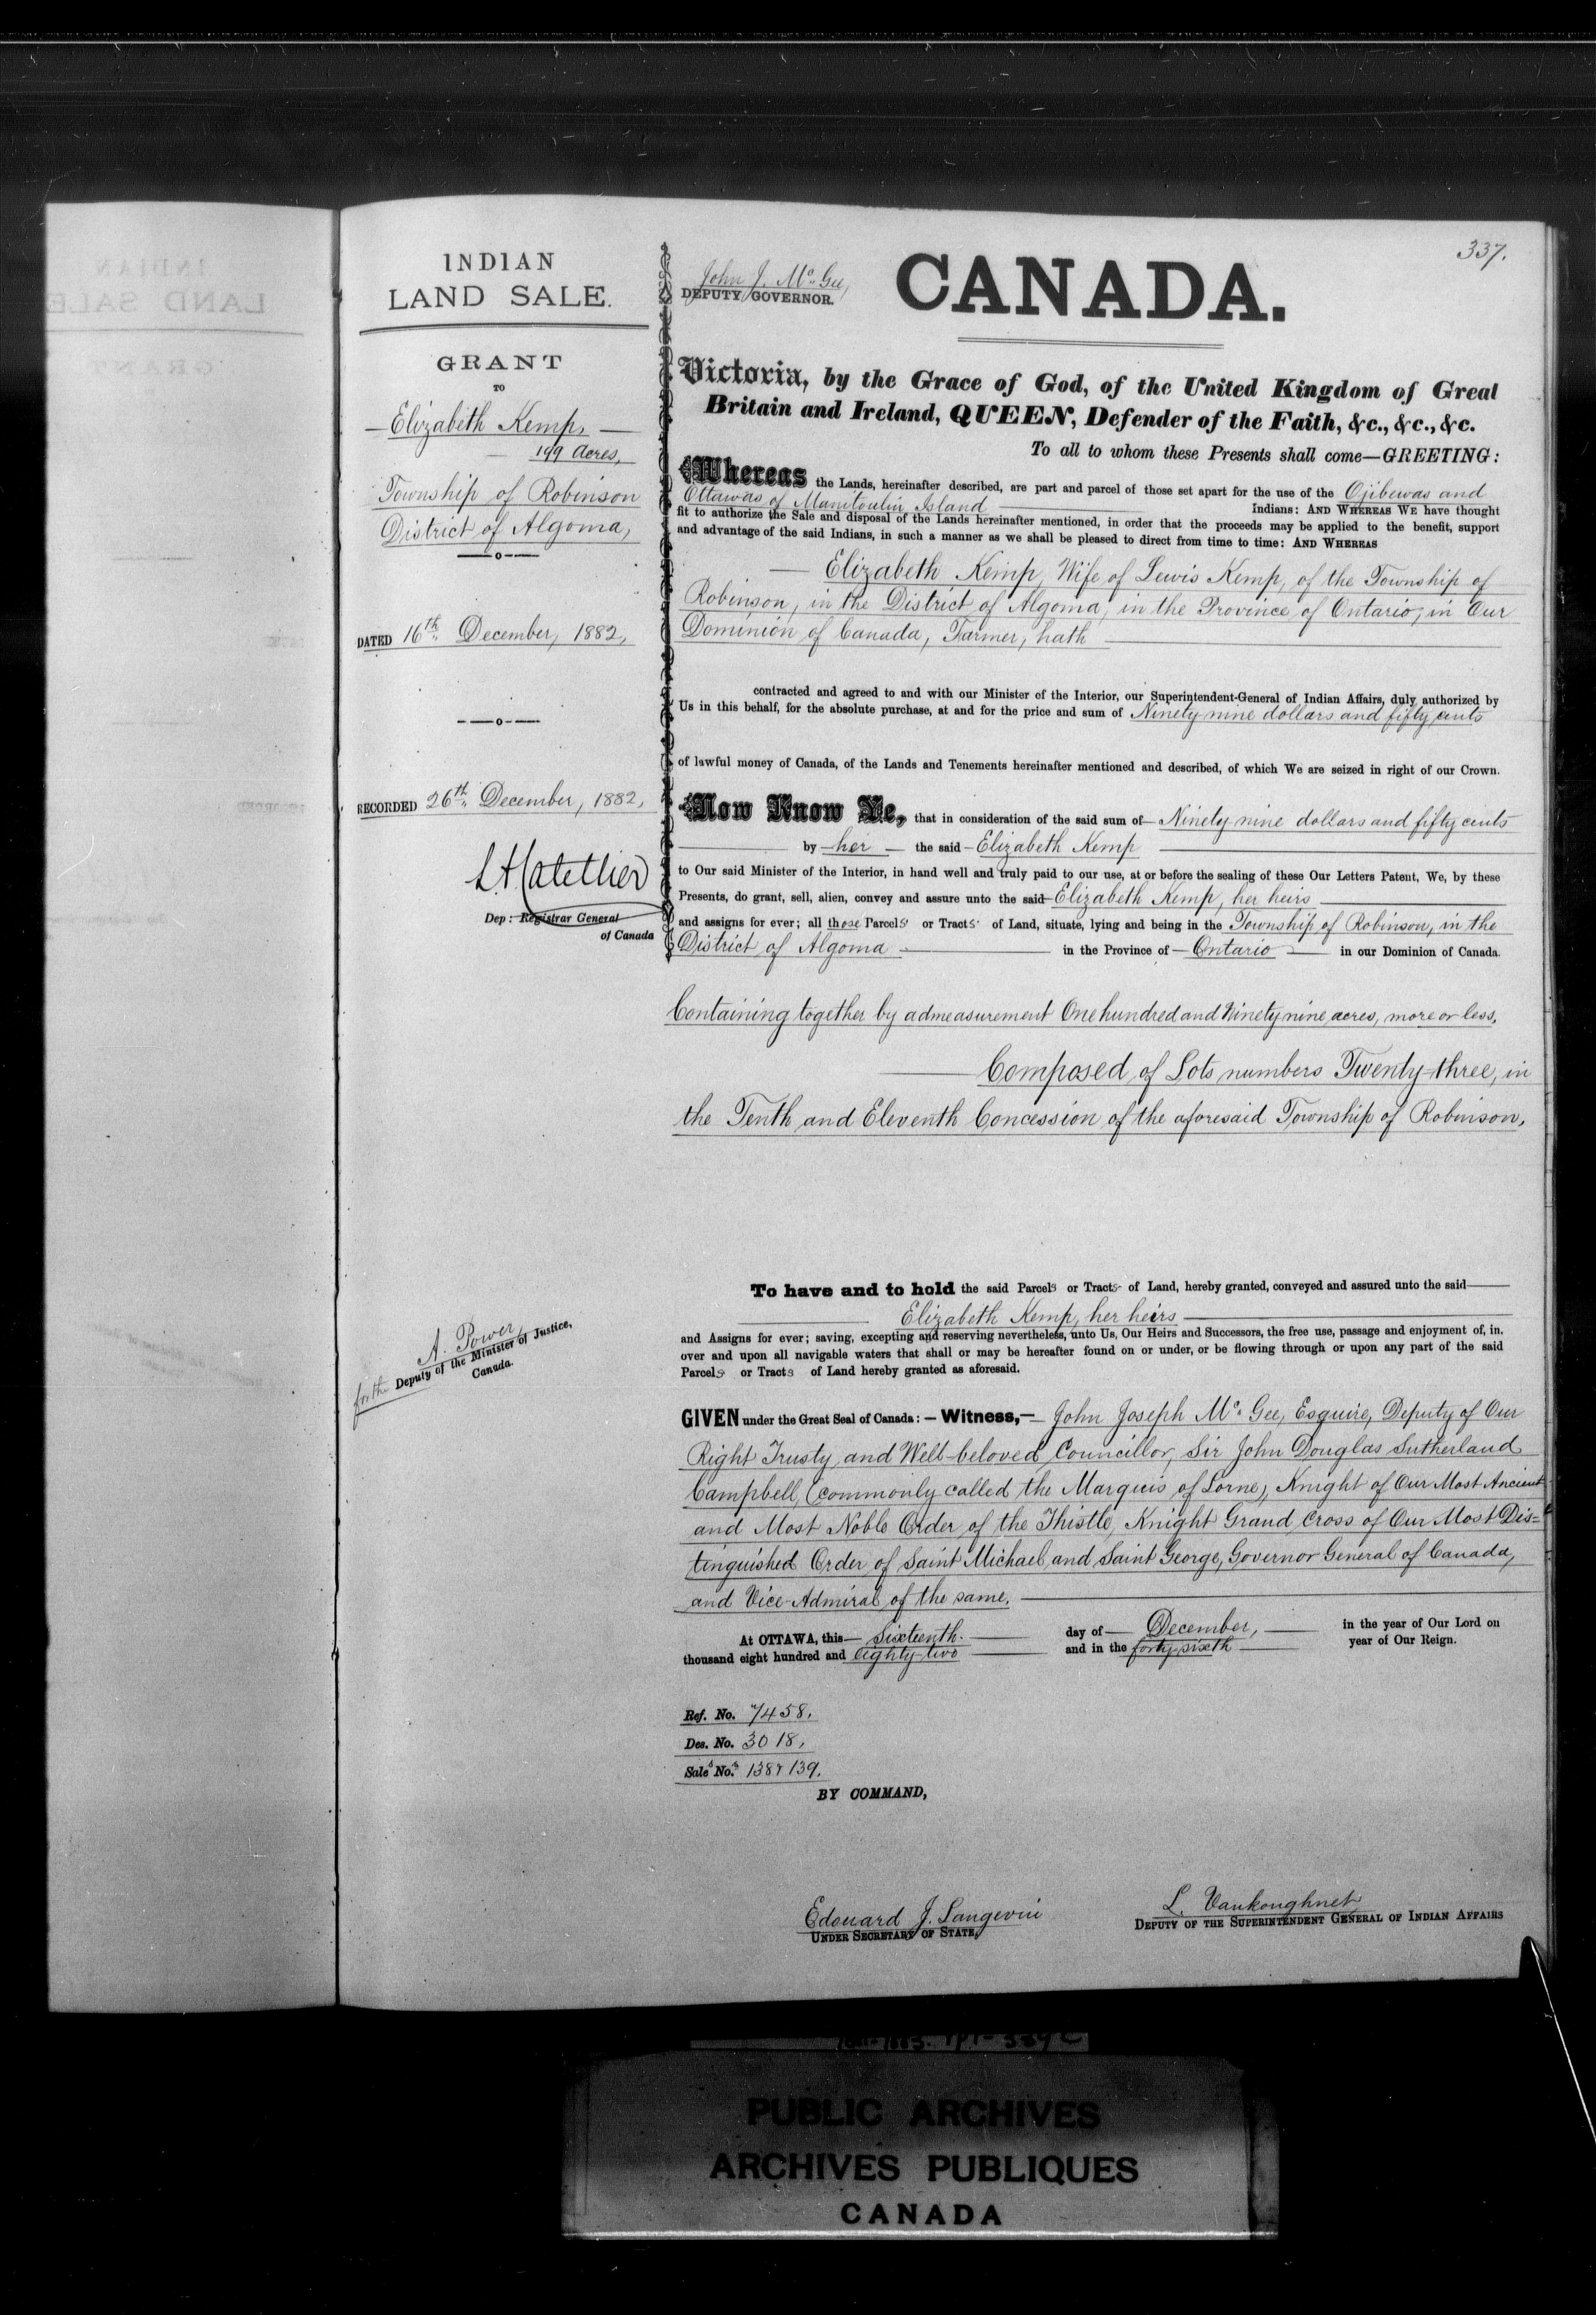 337.
INDIAN
LAND SALE.
GRANT
TO
Elizabeth Kemp,
199 Acres,
Township of Robinson
District of Algoma,
DATED 16th December, 1882,
RECORDED 26th December, 1882,
Dep: Registrar General
of Canada
A. Power,
for the Deputy of the Minister of Justice,
Canada.
John J. McGee,
DEPUTY GOVERNOR.
CANADA.
Victoria, by the Grace of God, of the United Kingdom of Great
Britain and Ireland, QUEEN, Defender of the Faith, &c., &c., &c.
To all to whom these Presents shall come—GREETING:
Whereas the Lands, hereinafter described, are part and parcel of those set apart for the use of the Ojibewas and
Ottawas of Manitoulin Island Indians: AND WHEREAS WE have thought
fit to authorize the Sale and disposal of the Lands hereinafter mentioned, in order that the proceeds may be applied to the benefit, support
and advantage of the said Indians, in such a manner as we shall be pleased to direct from time to time: AND WHEREAS
Elizabeth Kemp, Wife of Lewis Kemp, of the Township of
Robinson, in the District of Algoma, in the Province of Ontario, in Our
Dominion of Canada, Farmer, hath
contracted and agreed to and with our Minister of the Interior, our Superintendent-General of Indian Affairs, duly authorized by
Us in this behalf, for the absolute purchase, at and for the price and sum of Ninety nine dollars and fifty cents
of lawful money of Canada, of the Lands and Tenements hereinafter mentioned and described, of which We are seized in right of our Crown.
Now Know Ye, that in consideration of the said sum of Ninety nine dollars and fifty cents
by her the said Elizabeth Kemp
to Our said Minister of the Interior, in hand well and truly paid to our use, at or before the sealing of these Our Letters Patent, We, by these
Presents, do grant, sell, alien, convey and assure unto the said Elizabeth Kemp, her heirs
and assigns for ever; all those Parcels or Tracts of Land, situate, lying and being in the Township of Robinson, in the
District of Algoma in the Province of Ontario in our Dominion of Canada.
Containing together by admeasurement One hundred and Ninety nine acres, more or less,
Composed of Lots numbers Twenty-three, in
the Tenth and Eleventh Concession of the aforesaid Township of Robinson,
To have and to hold the said Parcels or Tracts of Land, hereby granted, conveyed and assured unto the said
Elizabeth Kemp, her heirs
and Assigns for ever; saving, excepting and reserving nevertheless, unto Us, Our Heirs and Successors, the free use, passage and enjoyment of, in,
over and upon all navigable waters that shall or may be hereafter found on or under, or be flowing through or upon any part of the said
Parcels or Tracts of Land hereby granted as aforesaid.
GIVEN under the Great Seal of Canada:—Witness,— John Joseph McGee, Esquire, Deputy of Our
Right Trusty and Well-beloved Councillor, Sir John Douglas Sutherland
Campbell, (commonly called the Marquis of Lorne), Knight of Our Most Ancient
and Most Noble Order of the Thistle, Knight Grand Cross of Our Most Dis=
tinguished Order of Saint Michael and Saint George, Governor General of Canada,
and Vice-Admiral of the same.
At OTTAWA, this Sixteenth day of December, in the year of Our Lord on
thousand eight hundred and eighty-two and in the forty sixth year of Our Reign.
Ref. No. 7458.
Des. No. 3018,
Sales Nos. 138 & 139.
BY COMMAND,
Edouard J. Langevin
UNDER SECRETARY OF STATE,
L. Vankoughnet
DEPUTY OF THE SUPERINTENDENT GENERAL OF INDIAN AFFAIRS
PUBLIC ARCHIVES
ARCHIVES PUBLIQUES
CANADA